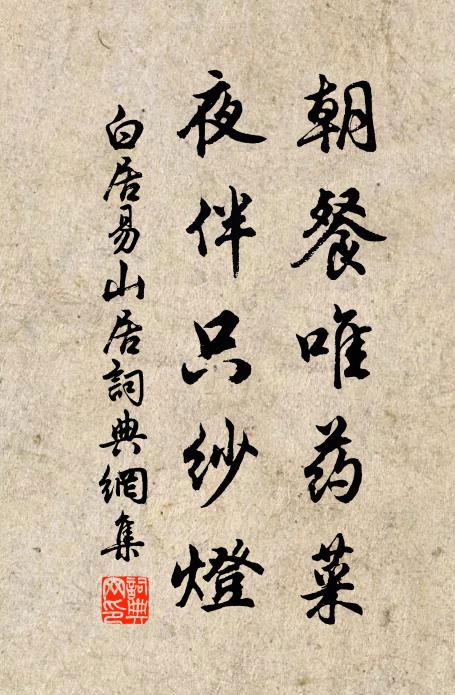 朝餐唯药菜
夜伴只纱燈
白居易山居詞典網集
詞典
网印